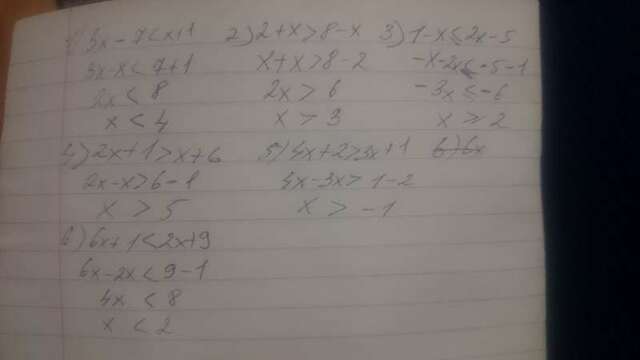 1) 3x-7<x+1
3x-x<7+1
2x<8
x<4
2) 2+x>8-x
x+x>8-2
2x>6
x>3
3) 1-x≤2x-5
-x-2x≤-5-1
-3x≤-6
x≥2
4) 2x+1>x+6
2x-x>6-1
x>5
5) 4x+2>3x+1
4x-3x>1-2
x>-1
6) 6x
6) 6x+1<2x+9
6x-2x<9-1
4x<8
x<2